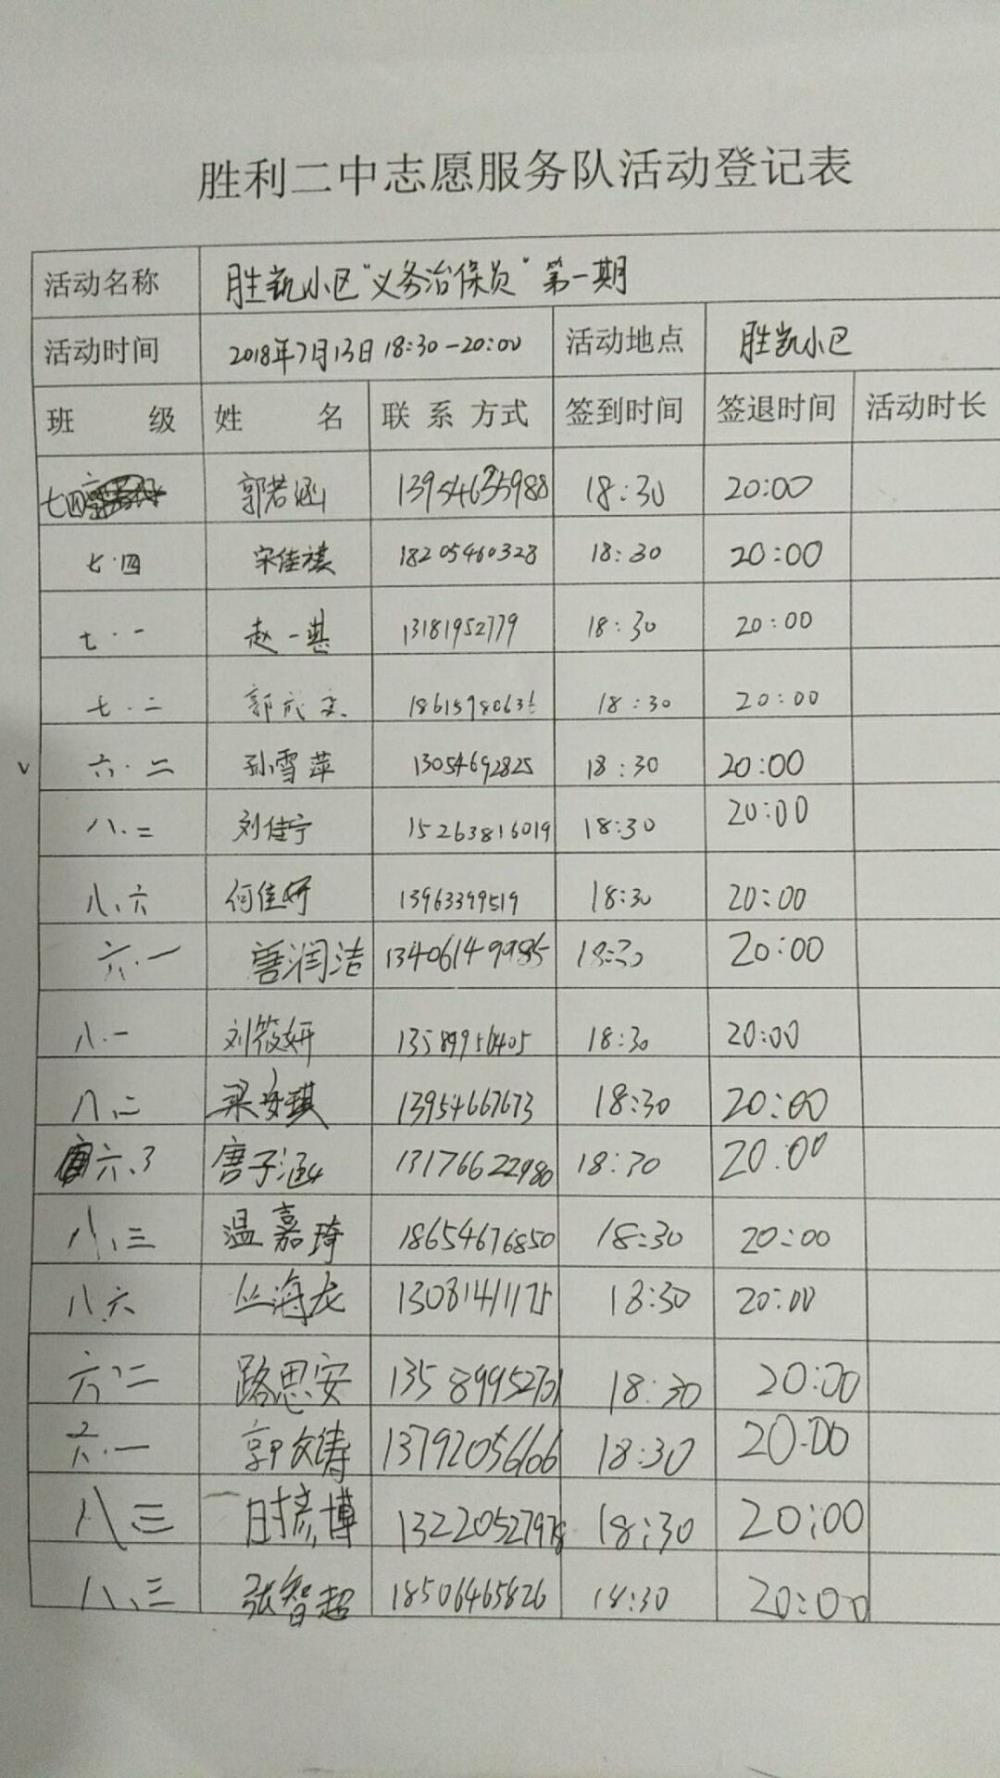 胜利二中志愿服务队活动登记表
活动名称 胜凯小区"义务治保员"第一期
活动时间 2018年7月13日 18:30-20:00 活动地点 胜凯小区
班 级 姓 名 联 系 方式 签到时间 签退时间 活动时长
七四 郭若涵 13954635988 18:30 20:00
七.四 宋佳祺 18205460328 18:30 20:00
七.一 赵一 13181952779 18:30 20:00
七.二 郭成 18615980636 18:30 20:00
六.二 孙雪萍 13054692825 18:30 20:00
八.二 刘佳宁 15263816019 18:30 20:00
八、六 何佳 13963399519 18:30 20:00
六.一 唐润洁 13406149985 18:30 20:00
八.一 刘筱妍 18:30 20:00
八、二 梁安琪 13954667673 18:30 20:00
六、3 唐子涵 13176622980 18:30 20:00
八、三 温嘉琦 18654676850 18:30 20:00
八六 丛海龙 13081411175 18:30 20:00
六.二 路思安 13589952701 18:30 20:00
六.一 郭文涛 13792056606 18:30 20:00
八三 时彦博 13220527978 18:30 20:00
八、三 张智超 18506465826 18:30 20:00